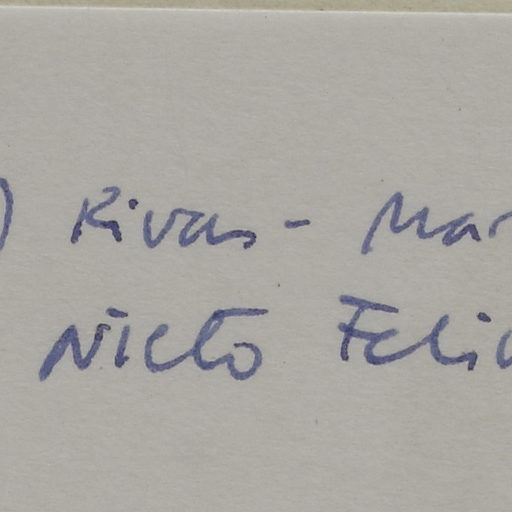 ) Rivas - Mar
Nieto Feli